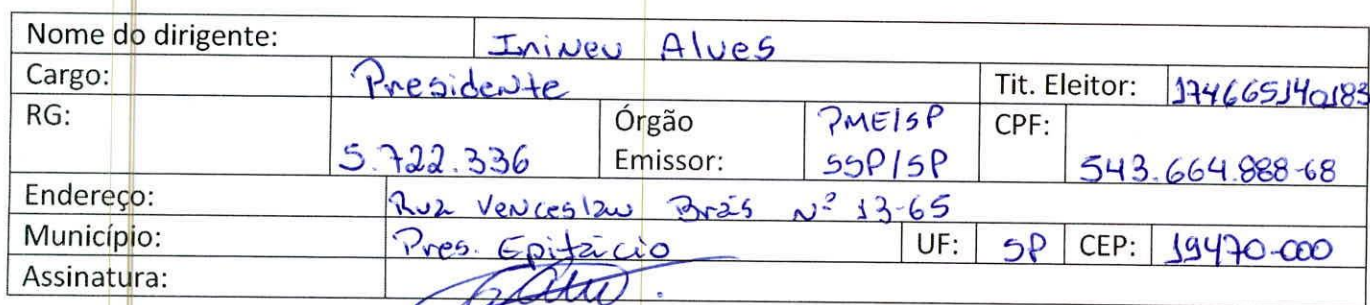 Nome do dirigente: Irineu Alves
Cargo: Presidente Tit. Eleitor: 174665140183
RG: 5.722.336 Órgão Emissor: PME/SP SSP/SP CPF: 543.664.888-68
Endereço: Rua Venceslau Brás Nº 13-65
Município: Pres. Epitácio UF: SP CEP: 19470-000
Assinatura: